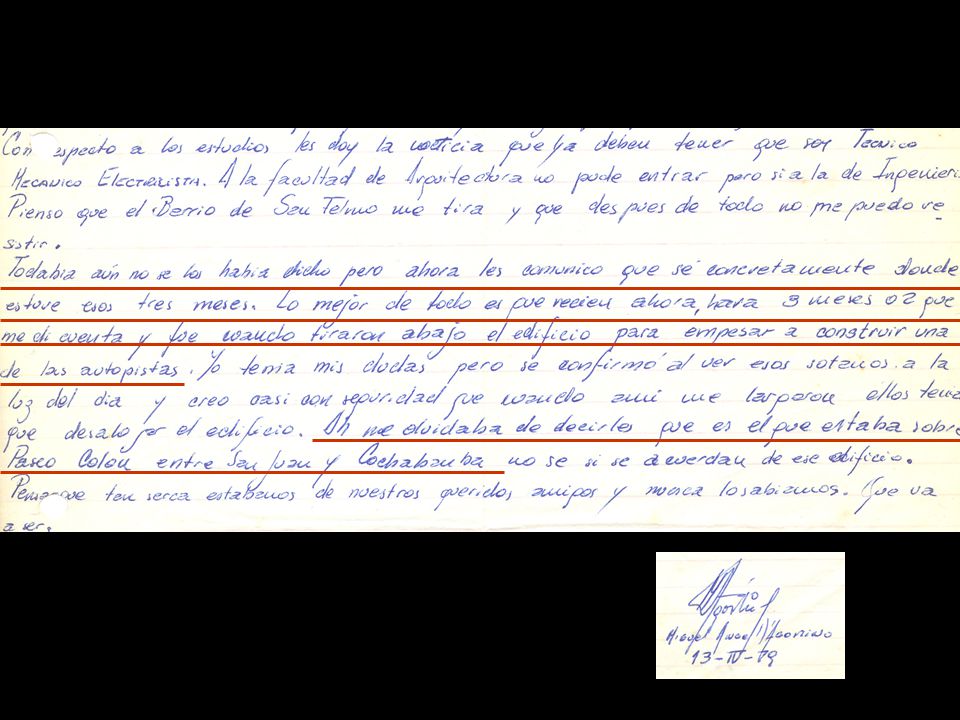 Con respecto a los estudios les doy la noticia que ya deben tener que soy TECNICO
MECANICO ELECTRICISTA. A la facultad de Arquitectura no pude entrar pero si a la de Ingenieri
Pienso que el Barrio de San Telmo me tira y que despues de todo no me puedo re
sistir.
Todabia aún no se los habia dicho pero ahora les comunico que sé concretamente donde
estuve esos tres meses. Lo mejor de todo es que recien ahora, hara 3 meses o 2 que
me di cuenta y fue cuando tiraron abajo el edificio para empesar a construir una
de las autopistas. Yo tenia mis dudas pero se confirmó al ver esos sotanos a la
luz del dia y creo casi con seguridad que cuando ami me largaron ellos tenia
que desalojar el edificio. Ah me olvidaba de decirles que es el que estaba sobre
Paseo Colon entre San Juan y Cochabamba no se si se acuerdan de ese edificio.
Pensar que tan serca estabamos de nuestros queridos amigos y nunca lo sabiamos. Que va
a ser.
Miguel Angel D'Agostino
13-IV-79